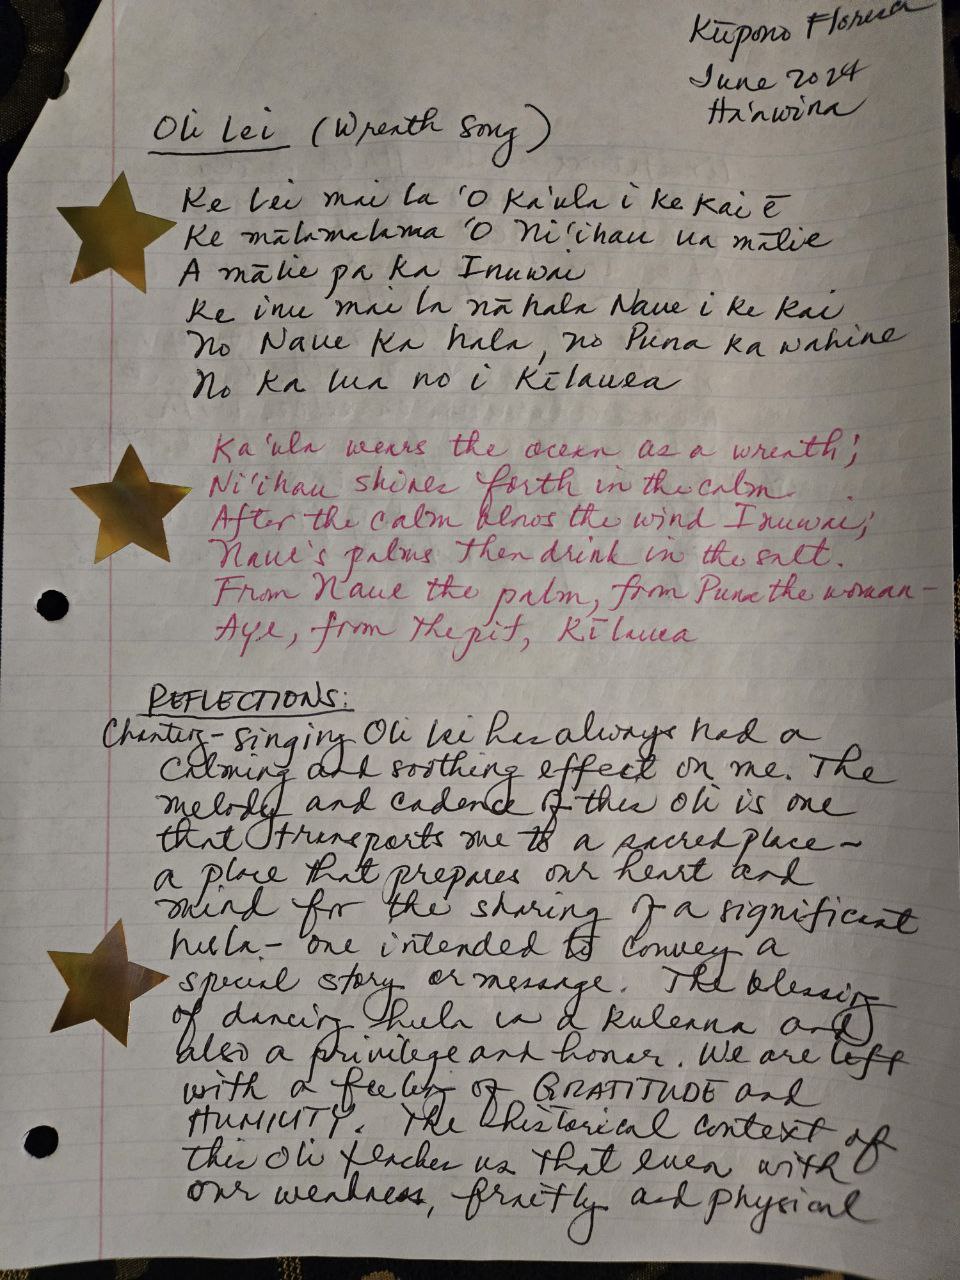 Kūpono Floresca
June 2024
Ha'awina
Oli Lei (Wreath Song)
Ke lei mai la 'O Ka'ula i ke kai ē
Ke mālamalama 'O Ni'ihau ua mālie
A mālie pa ka Inuwai
Ke inu mai la nā hala Naue i ke kai
No Naue ka hala, no Puna ka wahine
No ka lua no i Kīlauea
Ka'ula wears the ocean as a wreath;
Ni'ihau shines forth in the calm.
After the calm blows the wind Inuwai;
Naue's palms then drink in the salt.
From Naue the palm, from Puna the woman-
Aye, from the pit, Kīlauea
REFLECTIONS:
Chanting- singing Oli Lei has always had a
calming and soothing effect on me. The
melody and cadence of this Oli is one
that transports me to a sacred place ~
a place that prepares our heart and
mind for the sharing of a significant
hula- one intended to convey a
special story or message. The blessing
of dancing hula is a kuleana and
also a privilege and honor. We are left
with a feeling of GRATITUDE and
HUMILITY. The historical context of
this Oli teaches us that even with
our weakness, frailty and physical